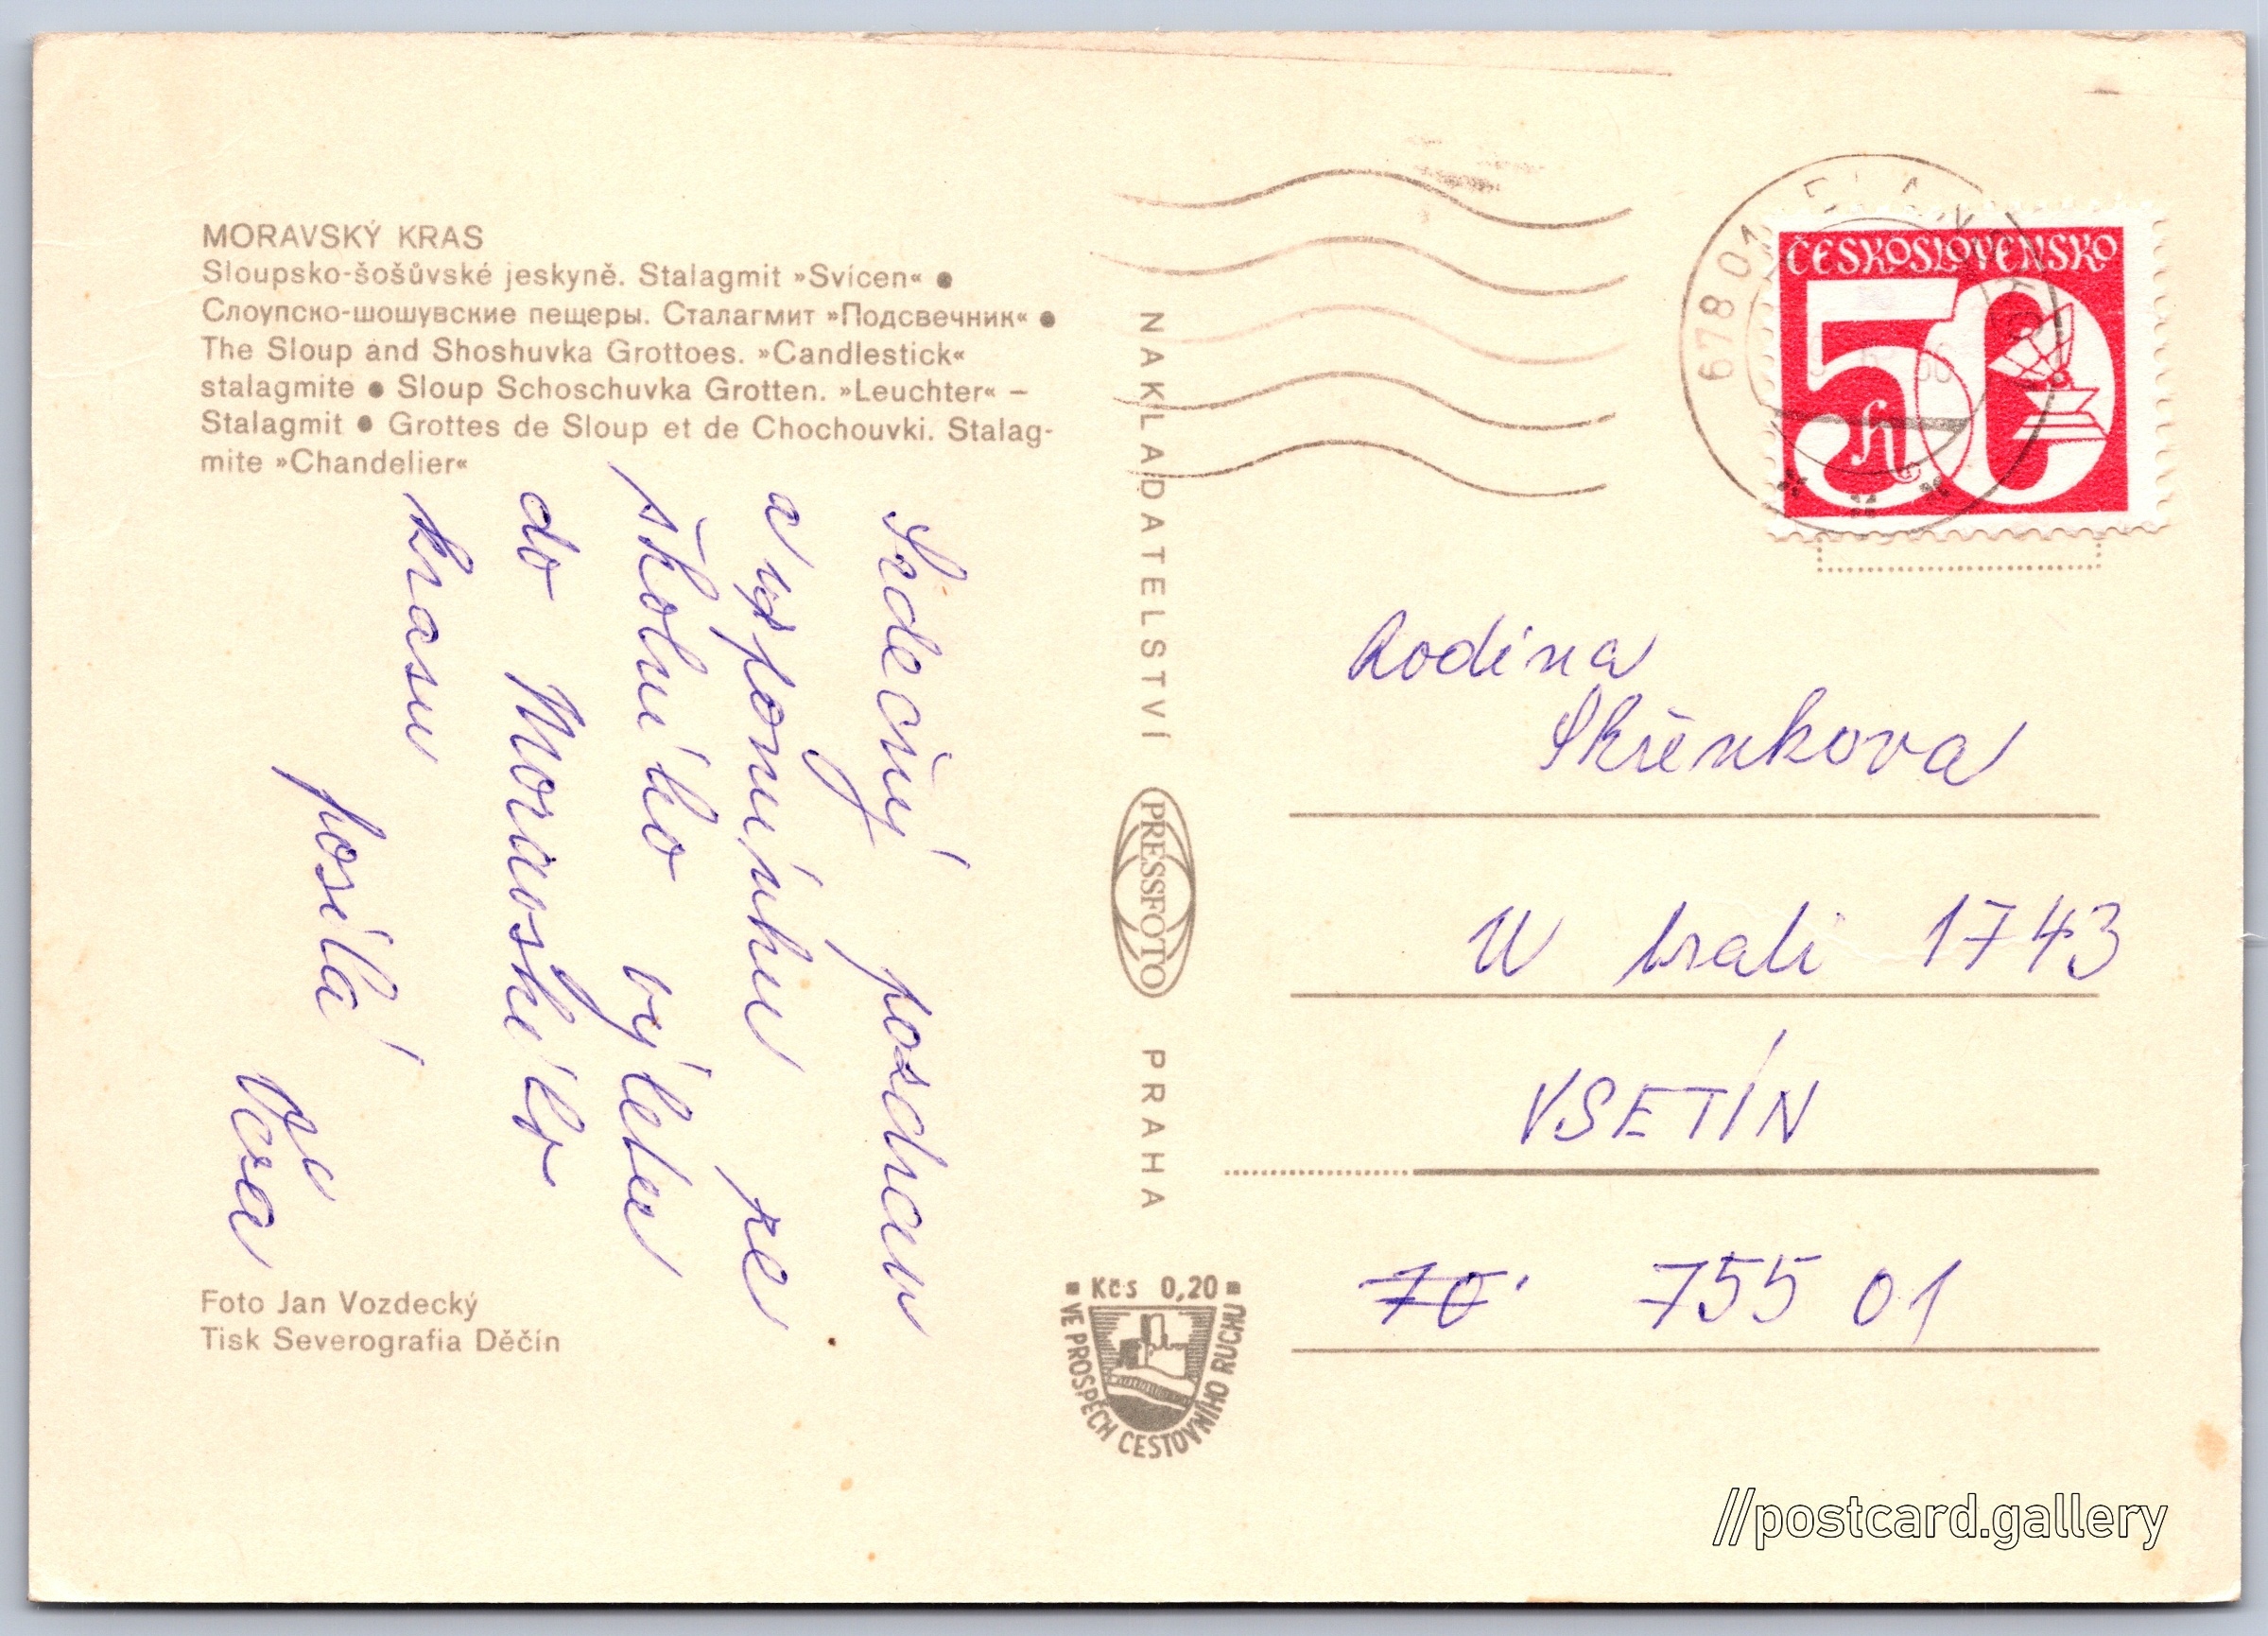 MORAVSKÝ KRAS
Sloupsko-šošůvské jeskyně. Stalagmit »Svícen« ●
Слоупско-шошувские пещеры. Сталагмит »Подсвечник« ●
The Sloup and Shoshuvka Grottoes. »Candlestick«
stalagmite ● Sloup Schoschuvka Grotten. »Leuchter« –
Stalagmit ● Grottes de Sloup et de Chochouvki. Stalag-
mite »Chandelier«
Srdečný pozdrav
a vzpomínku ze
školního výletu
do Moravského
krasu
posílá
Věra
Foto Jan Vozdecký
Tisk Severografia Děčín
NAKLADATELSTVÍ PRESSFOTO PRAHA
Kčs 0,20
VE PROSPĚCH CESTOVNÍHO RUCHU
678 01
ČESKOSLOVENSKO
50 h
Rodina
Skřenkova
U trati 1743
VSETÍN
755 01
//postcard.gallery